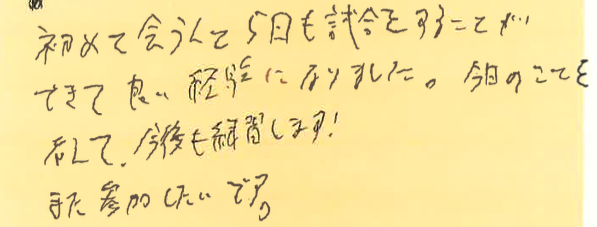 初めて会う人と5回も試合をすることが
できて良い経験になりました。今日のことを
活かして、今後も練習します!
また参加したいです。